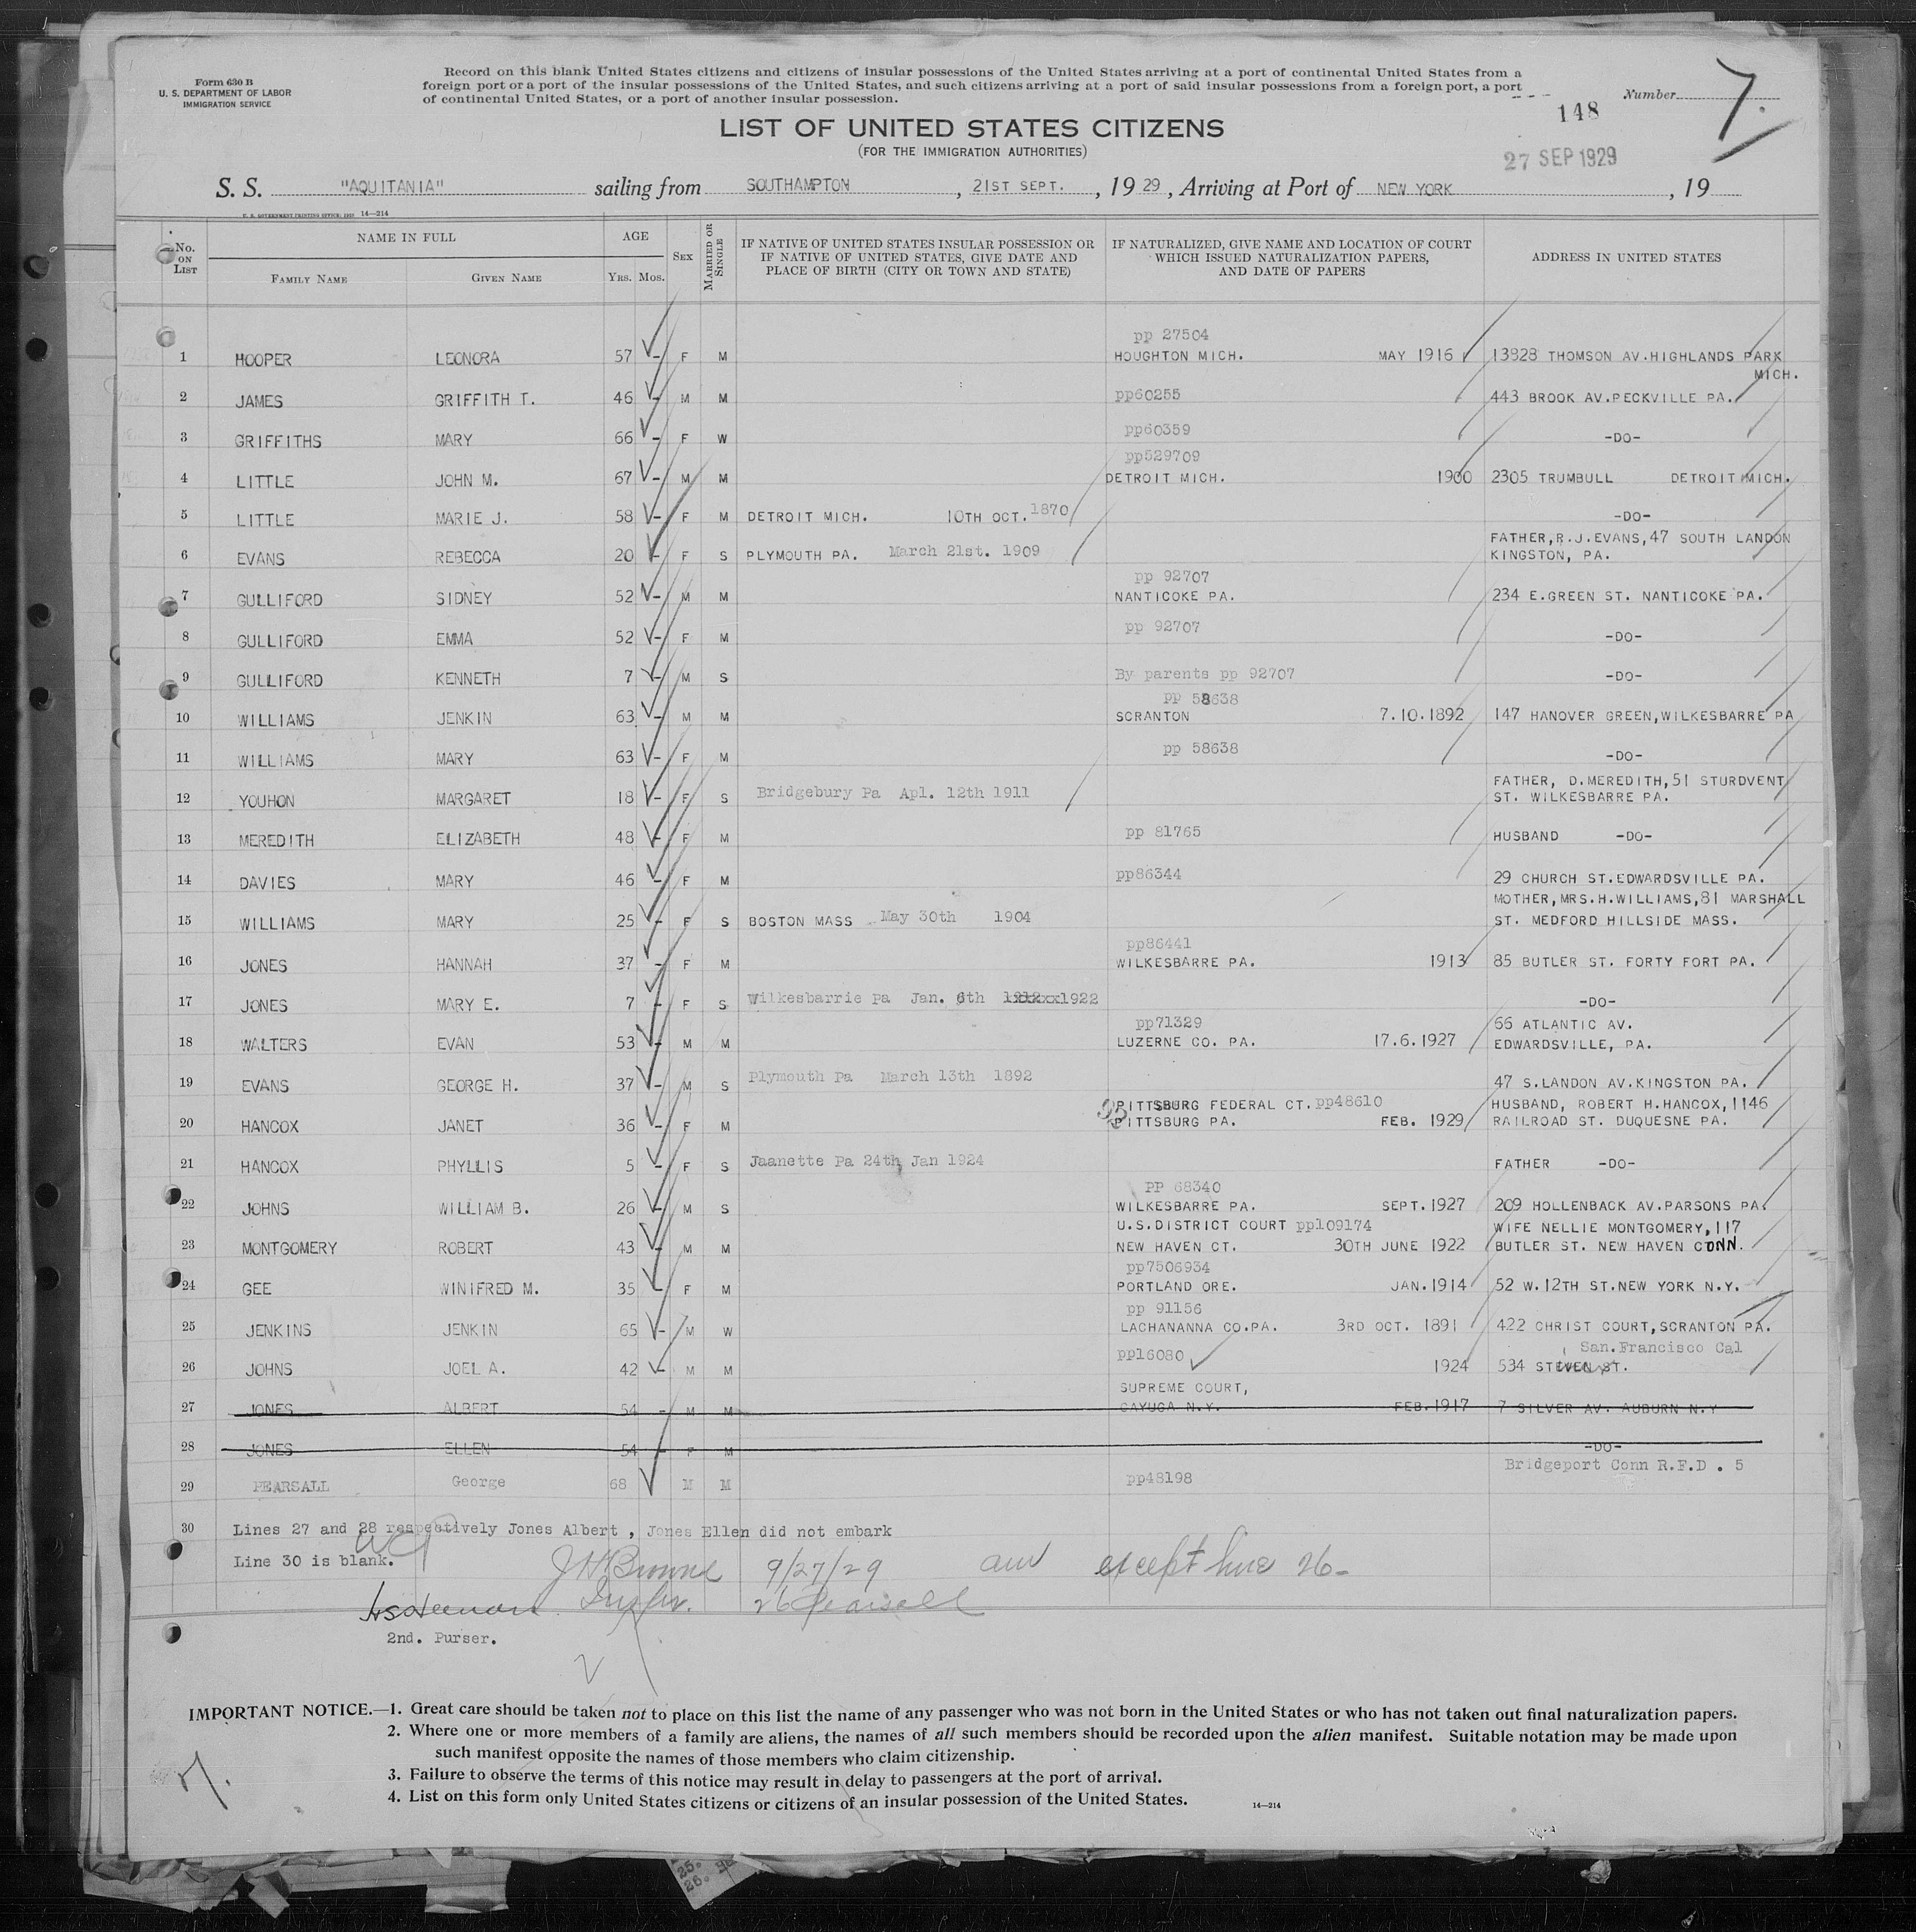 Form 630 B
U. S. DEPARTMENT OF LABOR
IMMIGRATION SERVICE
Record on this blank United States citizens and citizens of insular possessions of the United States arriving at a port of continental United States from a
foreign port or a port of the insular possessions of the United States, and such citizens arriving at a port of said insular possessions from a foreign port, a port
of continental United States, or a port of another insular possession.
Number 7.
148
LIST OF UNITED STATES CITIZENS
(FOR THE IMMIGRATION AUTHORITIES)
27 SEP 1929
S. S. "AQUITANIA" sailing from SOUTHAMPTON, 21ST SEPT., 1929, Arriving at Port of NEW YORK, 19
U. S. GOVERNMENT PRINTING OFFICE: 14—214
No. ON LIST NAME IN FULL AGE SEX MARRIED OR SINGLE IF NATIVE OF UNITED STATES INSULAR POSSESSION OR IF NATIVE OF UNITED STATES, GIVE DATE AND PLACE OF BIRTH (CITY OR TOWN AND STATE) IF NATURALIZED, GIVE NAME AND LOCATION OF COURT WHICH ISSUED NATURALIZATION PAPERS, AND DATE OF PAPERS ADDRESS IN UNITED STATES
FAMILY NAME GIVEN NAME YRS. MOS.
pp 27504
1 HOOPER LEONORA 57 - F M HOUGHTON MICH. MAY 1916 13828 THOMSON AV.HIGHLANDS PARK
MICH.
2 JAMES GRIFFITH T. 46 - M M pp60255 443 BROOK AV.PECKVILLE PA.
3 GRIFFITHS MARY 66 - F W pp60359 -DO-
pp529709
4 LITTLE JOHN M. 67 - M M DETROIT MICH. 1900 2305 TRUMBULL DETROIT MICH.
5 LITTLE MARIE J. 58 - F M DETROIT MICH. 10TH OCT. 1870 -DO-
FATHER,R.J.EVANS,47 SOUTH LANDON
6 EVANS REBECCA 20 - F S PLYMOUTH PA. March 21st. 1909 KINGSTON, PA.
pp 92707
7 GULLIFORD SIDNEY 52 - M M NANTICOKE PA. 234 E.GREEN ST. NANTICOKE PA.
8 GULLIFORD EMMA 52 - F M pp 92707 -DO-
9 GULLIFORD KENNETH 7 - M S By parents pp 92707 -DO-
pp 58638
10 WILLIAMS JENKIN 63 - M M SCRANTON 7.10.1892 147 HANOVER GREEN,WILKESBARRE PA
11 WILLIAMS MARY 63 - F M pp 58638 -DO-
FATHER, D.MEREDITH,51 STURDVENT
12 YOUHON MARGARET 18 - F S Bridgebury Pa Apl. 12th 1911 ST. WILKESBARRE PA.
13 MEREDITH ELIZABETH 48 - F M pp 81765 HUSBAND -DO-
14 DAVIES MARY 46 - F M pp86344 29 CHURCH ST.EDWARDSVILLE PA.
MOTHER,MRS.H.WILLIAMS,81 MARSHALL
15 WILLIAMS MARY 25 - F S BOSTON MASS May 30th 1904 ST. MEDFORD HILLSIDE MASS.
pp86441
16 JONES HANNAH 37 - F M WILKESBARRE PA. 1913 85 BUTLER ST. FORTY FORT PA.
17 JONES MARY E. 7 - F S Wilkesbarrie Pa Jan. 6th 1922 -DO-
pp71329 66 ATLANTIC AV.
18 WALTERS EVAN 53 - M M LUZERNE CO. PA. 17.6.1927 EDWARDSVILLE, PA.
19 EVANS GEORGE H. 37 - M S Plymouth Pa March 13th 1892 47 S.LANDON AV.KINGSTON PA.
PITTSBURG FEDERAL CT. pp48610 HUSBAND, ROBERT H.HANCOX,1146
20 HANCOX JANET 36 - F M PITTSBURG PA. FEB. 1929 RAILROAD ST. DUQUESNE PA.
21 HANCOX PHYLLIS 5 - F S Jaanette Pa 24th Jan 1924 FATHER -DO-
PP 68340
22 JOHNS WILLIAM B. 26 - M S WILKESBARRE PA. SEPT.1927 209 HOLLENBACK AV.PARSONS PA.
U.S.DISTRICT COURT pp109174 WIFE NELLIE MONTGOMERY,117
23 MONTGOMERY ROBERT 43 - M M NEW HAVEN CT. 30TH JUNE 1922 BUTLER ST. NEW HAVEN CONN.
pp7506934
24 GEE WINIFRED M. 35 - F M PORTLAND ORE. JAN.1914 52 W.12TH ST.NEW YORK N.Y.
pp 91156
25 JENKINS JENKIN 65 - M W LACHANANNA CO.PA. 3RD OCT. 1891 422 CHRIST COURT,SCRANTON PA.
pp16080 San.Francisco Cal
26 JOHNS JOEL A. 42 - M M 1924 534 STEVEN ST.
SUPREME COURT,
27 JONES ALBERT 54 - M M CAYUGA N.Y. FEB.1917 7 SILVER AV. AUBURN N.Y
28 JONES ELLEN 54 - F M -DO-
Bridgeport Conn R.F.D . 5
29 PEARSALL George 68 M M pp48198
30 Lines 27 and 28 respectively Jones Albert , Jones Ellen did not embark
Line 30 is blank.
JH Browne 9/27/29 except line 26-
26 Pearsall
2nd. Purser.
IMPORTANT NOTICE.—1. Great care should be taken not to place on this list the name of any passenger who was not born in the United States or who has not taken out final naturalization papers.
2. Where one or more members of a family are aliens, the names of all such members should be recorded upon the alien manifest. Suitable notation may be made upon
such manifest opposite the names of those members who claim citizenship.
3. Failure to observe the terms of this notice may result in delay to passengers at the port of arrival.
4. List on this form only United States citizens or citizens of an insular possession of the United States.
14—214
7.
25.
26.